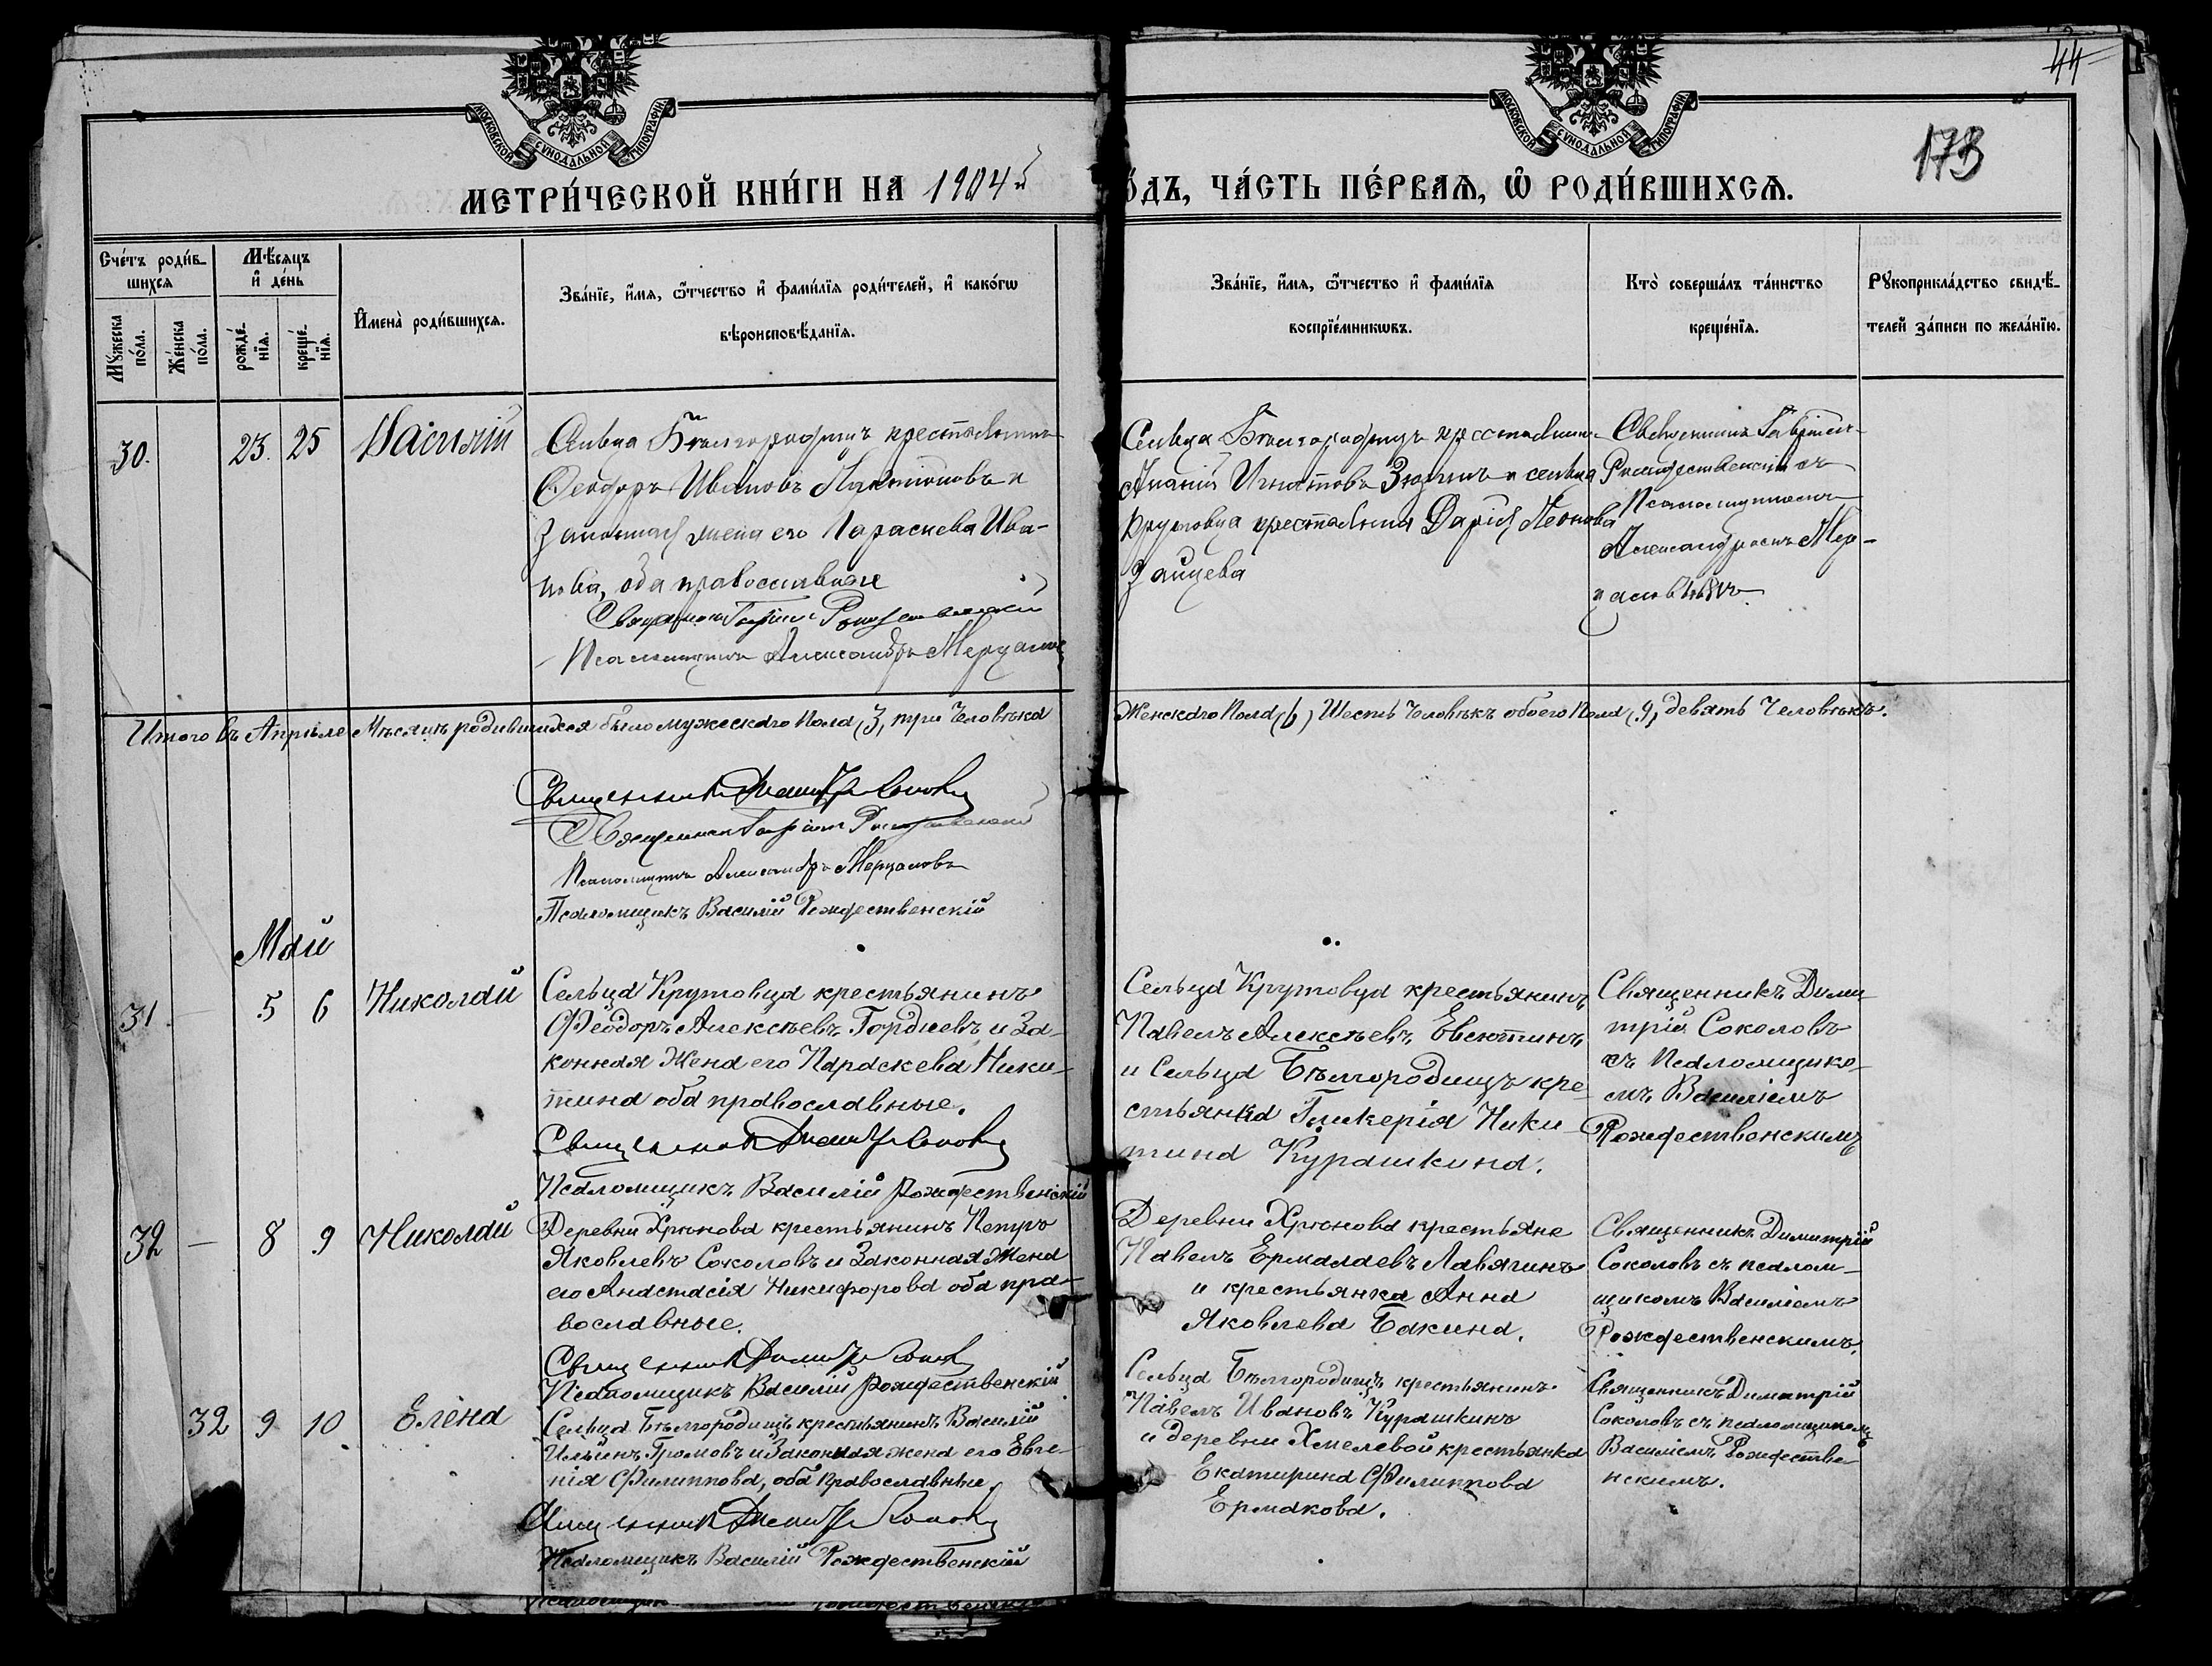 44
173
МОСКОВСКОЙ СѴНОДАЛЬНОЙ ТИПОГРАФІИ
МОСКОВСКОЙ СѴНОДАЛЬНОЙ ТИПОГРАФІИ
МЕТРИ́ЧЕСКОЙ КНИ́ГИ НА 1904й
ОДЪ, ЧА́СТЬ ПЕ́РВАѦ, Ѿ РОДИ́ВШИХСѦ.
Сче́тъ роди́в-
шихсѧ
Мꙋжеска по́ла.
Же́нска по́ла.
Мѣ́сѧцъ
и҆ де́нь
рожде́-
нїѧ.
креще́-
нїѧ.
И҆мена̀ роди́вшихсѧ.
Зва́нїе, и҆́мѧ, ѻ҆́тчество и҆ фами́лїѧ роди́телей, и҆ како́гѡ
вѣроисповѣ́данїѧ.
Зва́нїе, и҆́мѧ, ѻ҆́тчество и҆ фами́лїѧ
воспрїе́мникѡвъ.
Кто̀ соверша́лъ та́инство
креще́нїѧ.
Рꙋкоприкла́дство свидѣ́-
телей за́писи по жела́нїю.
30. 23. 25 Василій
Сельца Бѣлгородищъ крестьянинъ
Ѳеодоръ Ивановъ Лактіоновъ и
законная жена его Параскева Ива-
нова, оба православные
Священникъ Гавріилъ Рождественскій
Псаломщикъ Александръ Мерцаловъ
Сельца Бѣлгородищъ крестьянин
Ананій Игнатовъ Зюзинъ и сельца
Крутовца крестьянка Дарія Леонова
Зайцева
Священникъ Гавріилъ
Рождественскій съ
Псаломщикомъ
Александромъ Мер-
цаловымъ
Итого въ Апрѣле Мѣсяцѣ родившихся было мужескаго пола (3, три Человѣка
Женскаго Пола (6) Шесть Человѣкъ обоего Пола (9, девять Человѣкъ.
Священникъ Димитрій Соколовъ
Священникъ Гавріилъ Рождественскій
Псаломщикъ Александръ Мерцаловъ
Псаломщикъ Василій Рождественскій
Май
31 — 5 6 Николай
Сельца Крутовца крестьянинъ
Ѳеодоръ Алексѣевъ Гордѣевъ и за-
конная Жена его Параскева Ники-
тина оба православные.
Священникъ Димитрій Соколовъ
Псаломщикъ Василій Рождественскій
Сельца Крутовца крестьянинъ
Павелъ Алексѣевъ Евсютинъ
и Сельца Бѣлгородищъ кре-
стьянка Гликерія Ники-
тина Курашкина.
Священникъ Дими-
трій Соколовъ
съ Псаломщико-
мъ Василіемъ
Рождественскимъ
32 — 8 9 Николай
Деревни Хрѣнова крестьянинъ Петръ
Яковлевъ Соколовъ и Законная Жена
его Анастасія Никифорова оба пра-
вославные.
Священникъ Димитрій Соколовъ
Псаломщикъ Василій Рождественскій
Деревни Хрѣнова крестьяне
Павелъ Ермалаевъ Лавягинъ
и крестьянка Анна
Яковлева Бакина.
Священникъ Димитрій
Соколовъ съ псалом-
щикомъ Василіемъ
Рождественскимъ.
32 9 10 Елена
Сельца Бѣлгородищъ крестьянинъ Василій
Ильинъ Громовъ и Законная жена его Евге-
нія Филиппова, оба Православные.
Священникъ Димитрій Соколовъ
Псаломщикъ Василій Рождественскій
Сельца Бѣлгородищъ крестьянинъ
Павелъ Ивановъ Курашкинъ
и деревни Хмелевой крестьянка
Екатирина Филиппова
Ермакова.
Священникъ Димитрій
Соколовъ съ псаломщикомъ
Василіемъ Рождестве-
нскимъ.